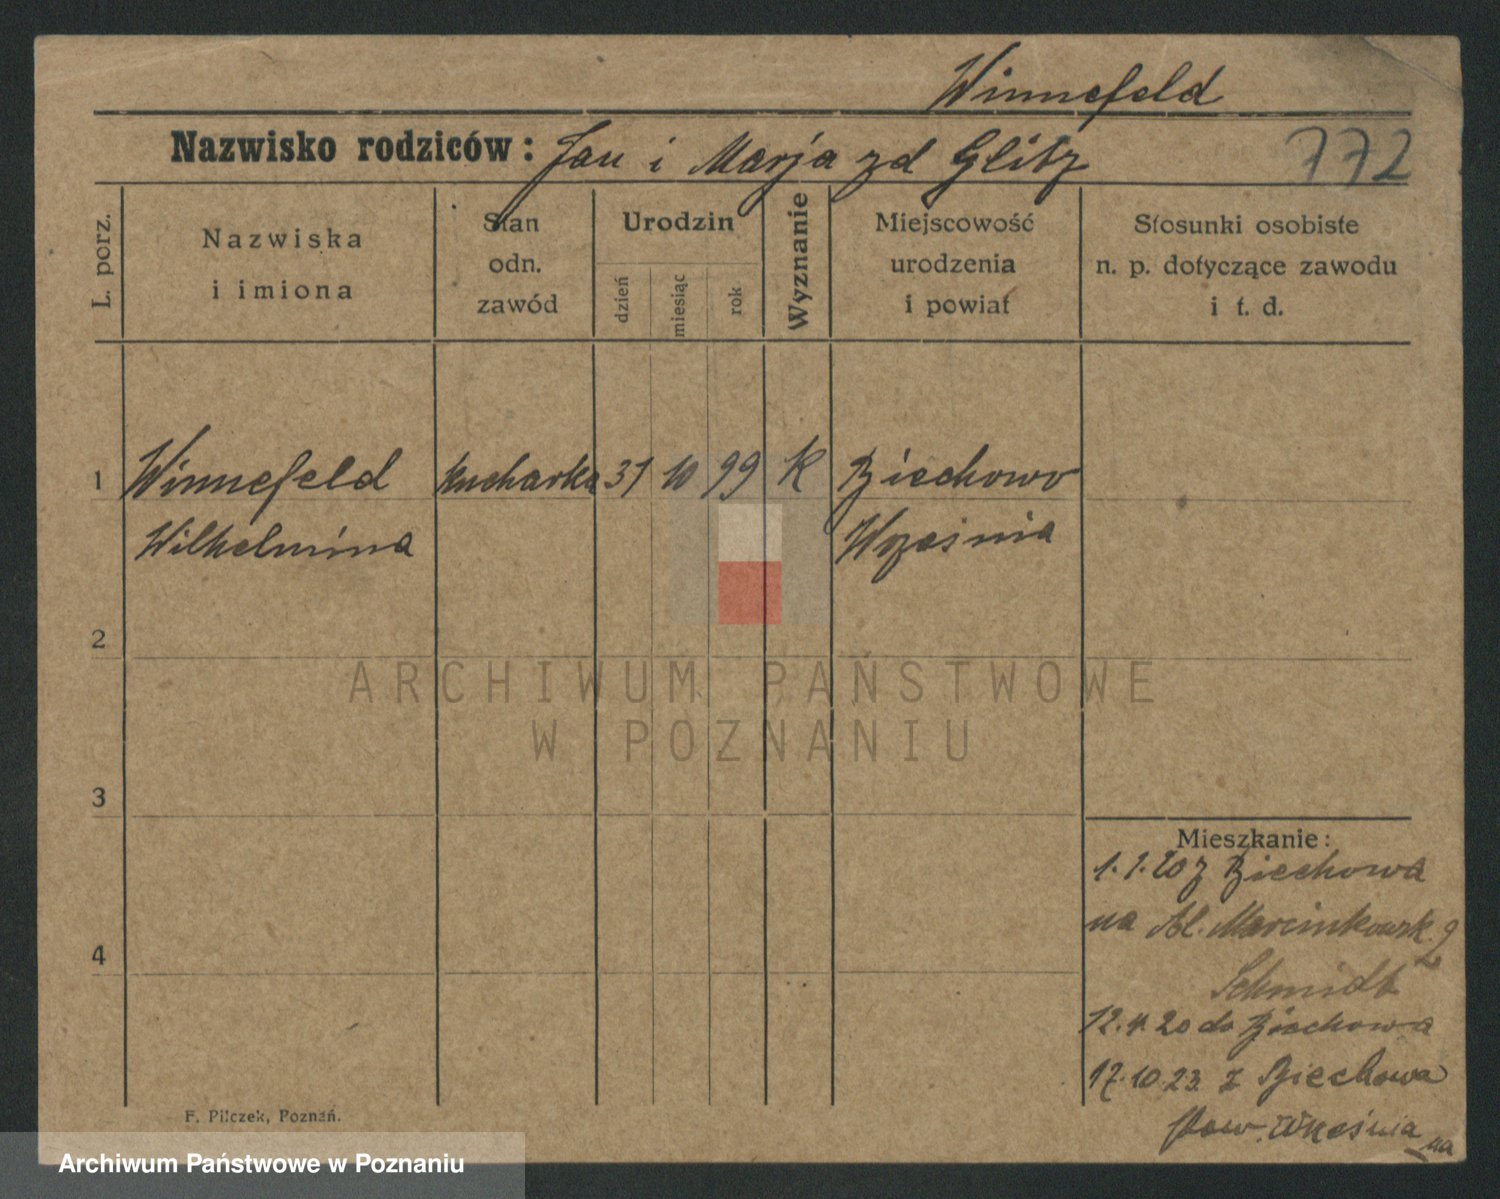 Winnefeld
Nazwisko rodziców: Jan i Marja zd Glitz
772
L. porz.
Nazwiska
i imiona
Stan
odn.
zawód
Urodzin
dzień
miesiąc
rok
Wyznanie
Miejscowość
urodzenia
i powiat
Stosunki osobiste
n. p. dotyczące zawodu
i t. d.
1
Winnefeld kucharka 31 10 99 K Biechowo
Wilhelmina Września
2
3
4
Mieszkanie:
1.1.20 z Biechowa
na Al. Marcinkowsk. 9
Schmidt
12.4.20 do Biechowa
17.10.23. z Biechowa
pow. Września
na
F. Pilczek, Poznań.
ARCHIWUM PAŃSTWOWE
W POZNANIU
Archiwum Państwowe w Poznaniu